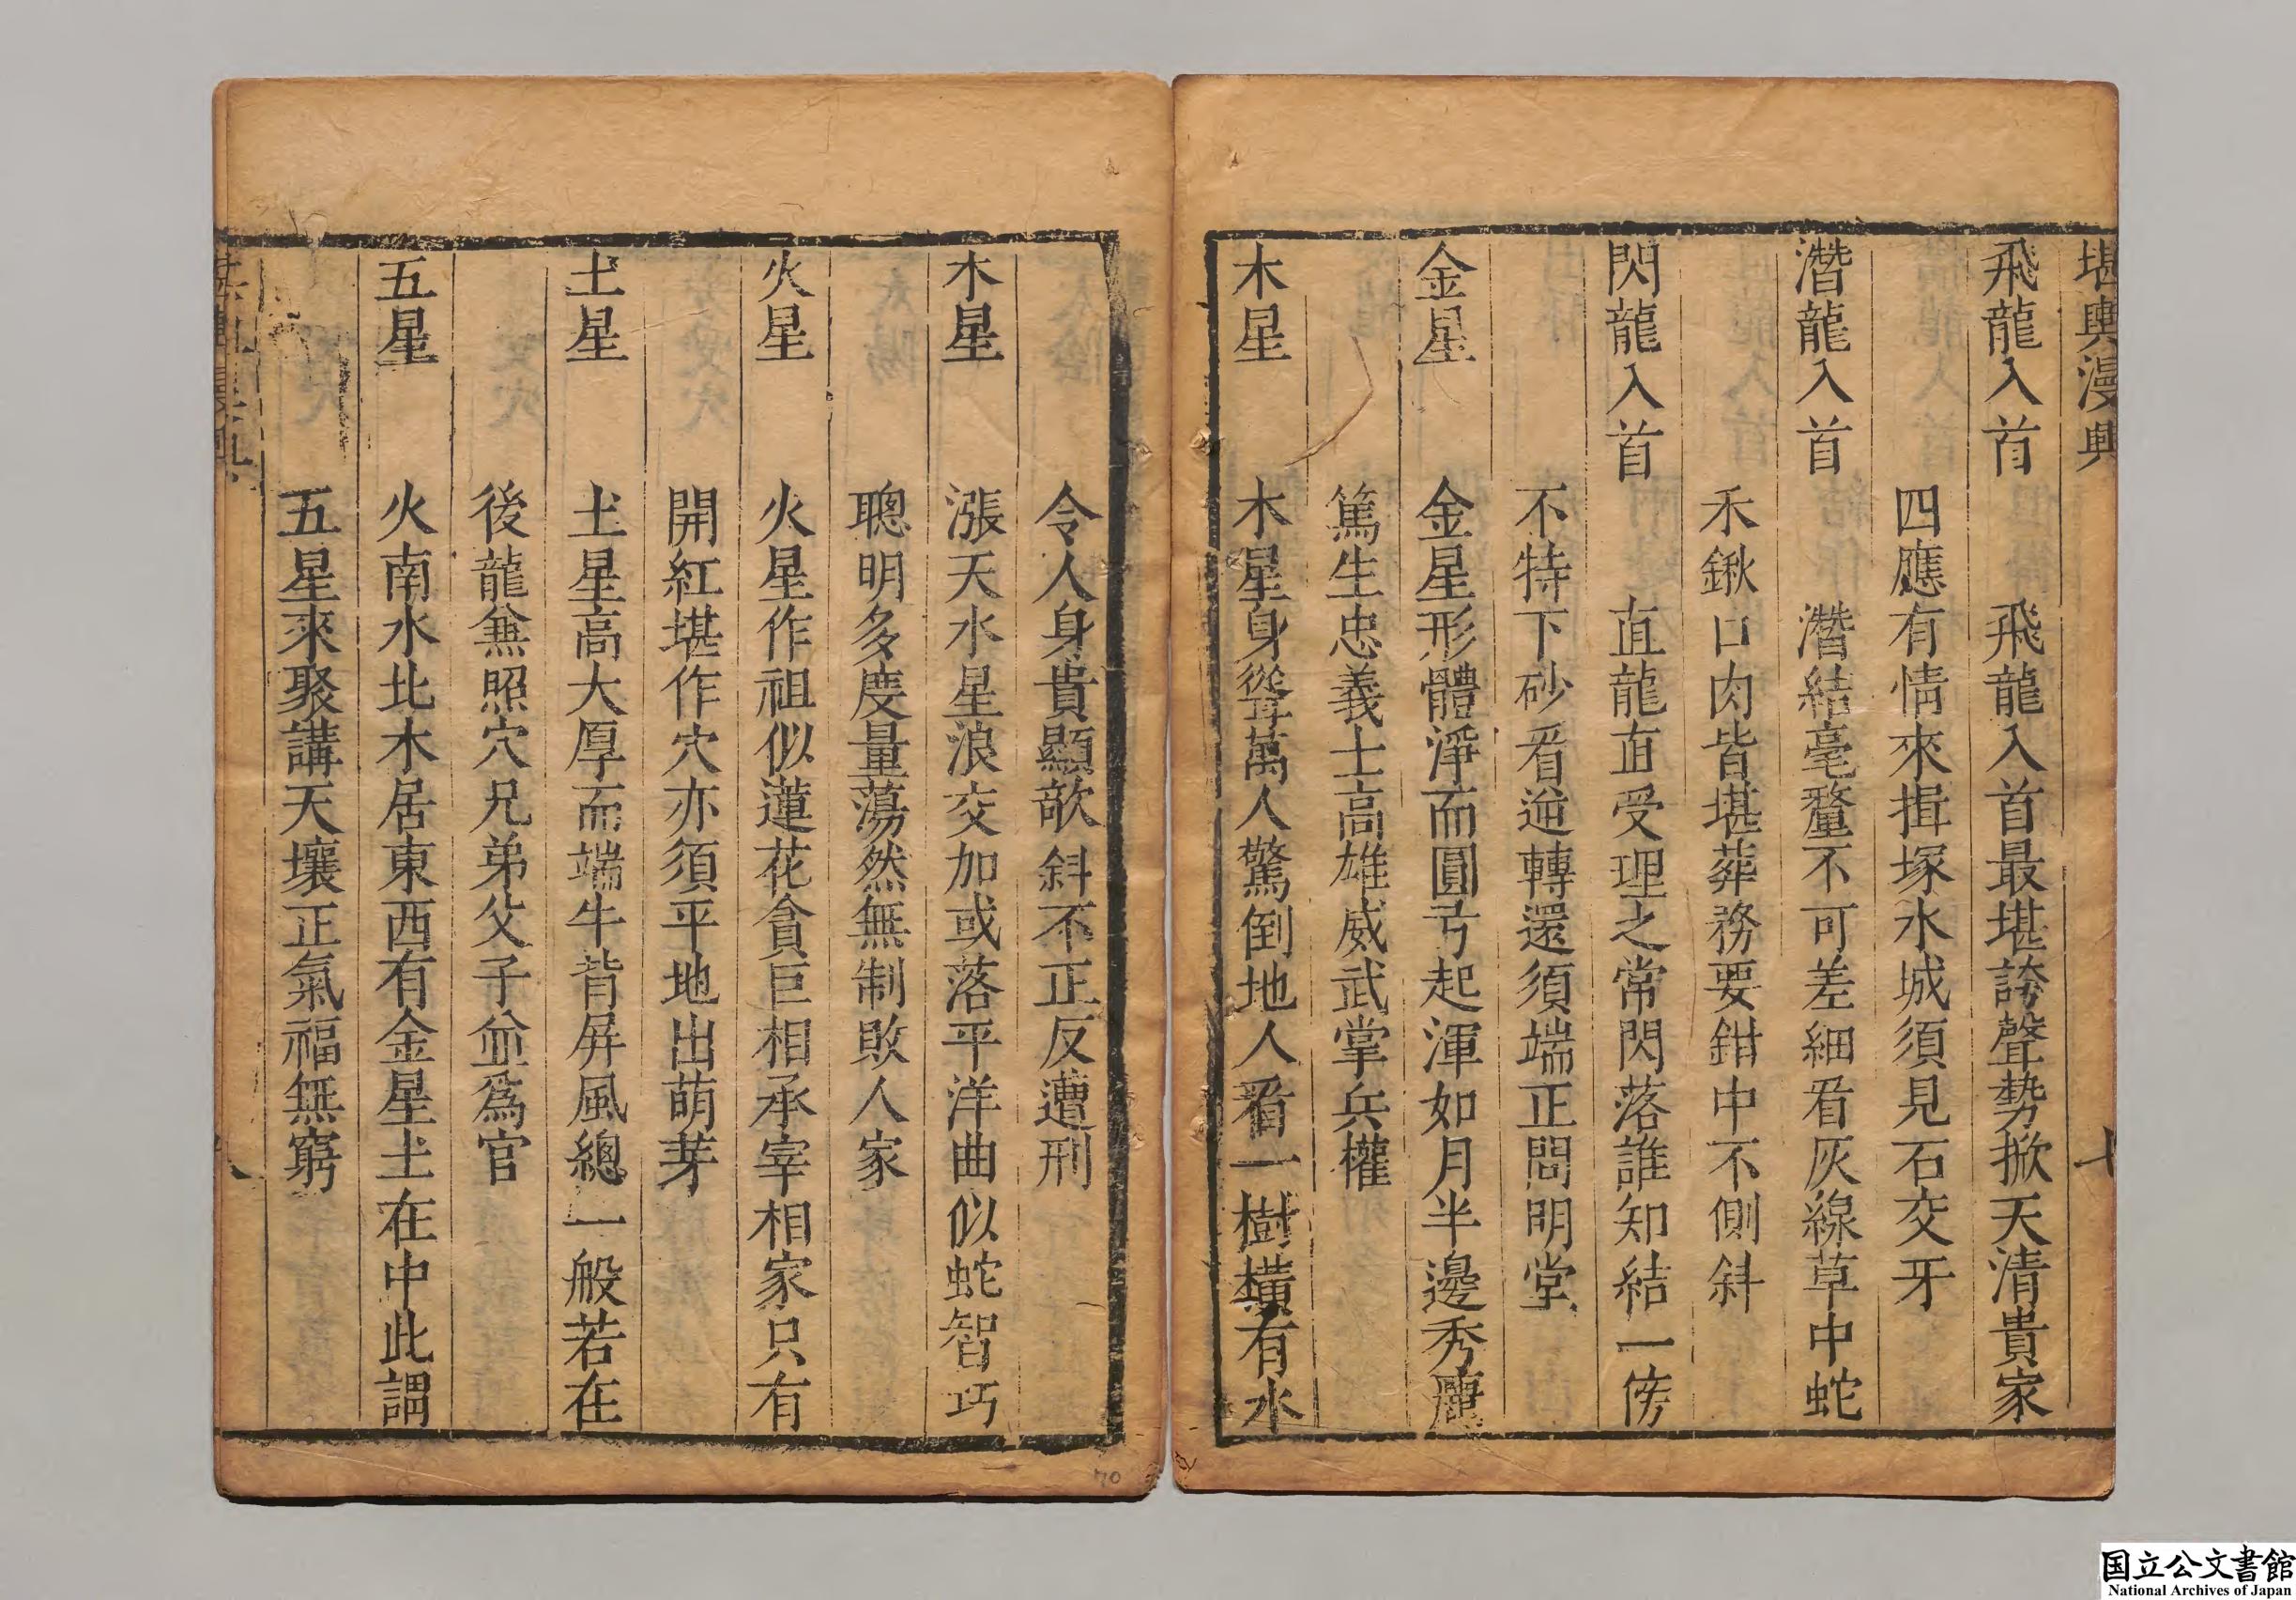 堪輿漫興
七
飛龍入首　飛龍入首最堪誇聲勢掀天清貴家
四應有情來揖塚水城須見石交牙
潛龍入首　潛結毫釐不可差細看灰線草中蛇
禾鍬口肉皆堪葬務要鉗中不側斜
閃龍入首　直龍直受理之常閃落誰知結一傍
不特下砂看逆轉還須端正問明堂
金星　金星形體淨而圓弓起渾如月半邊秀麗
篤生忠義士高雄威武掌兵權
木星　木星身聳萬人驚倒地人看一樹橫有水
令人身貴顯欹斜不正反遭刑
木星　漲天水星浪交加或落平洋曲似蛇智巧
聰明多度量蕩然無制敗人家
火星　火星作祖似蓮花貪巨相承宰相家只有
開紅堪作穴亦須平地出萌芽
土星　土星高大厚而端牛背屏風總一般若在
後龍兼照穴兄弟父子並為官
五星　火南水北木居東西有金星土在中此謂
五星來聚講天壤正氣福無窮
70
国立公文書館
National Archives of Japan